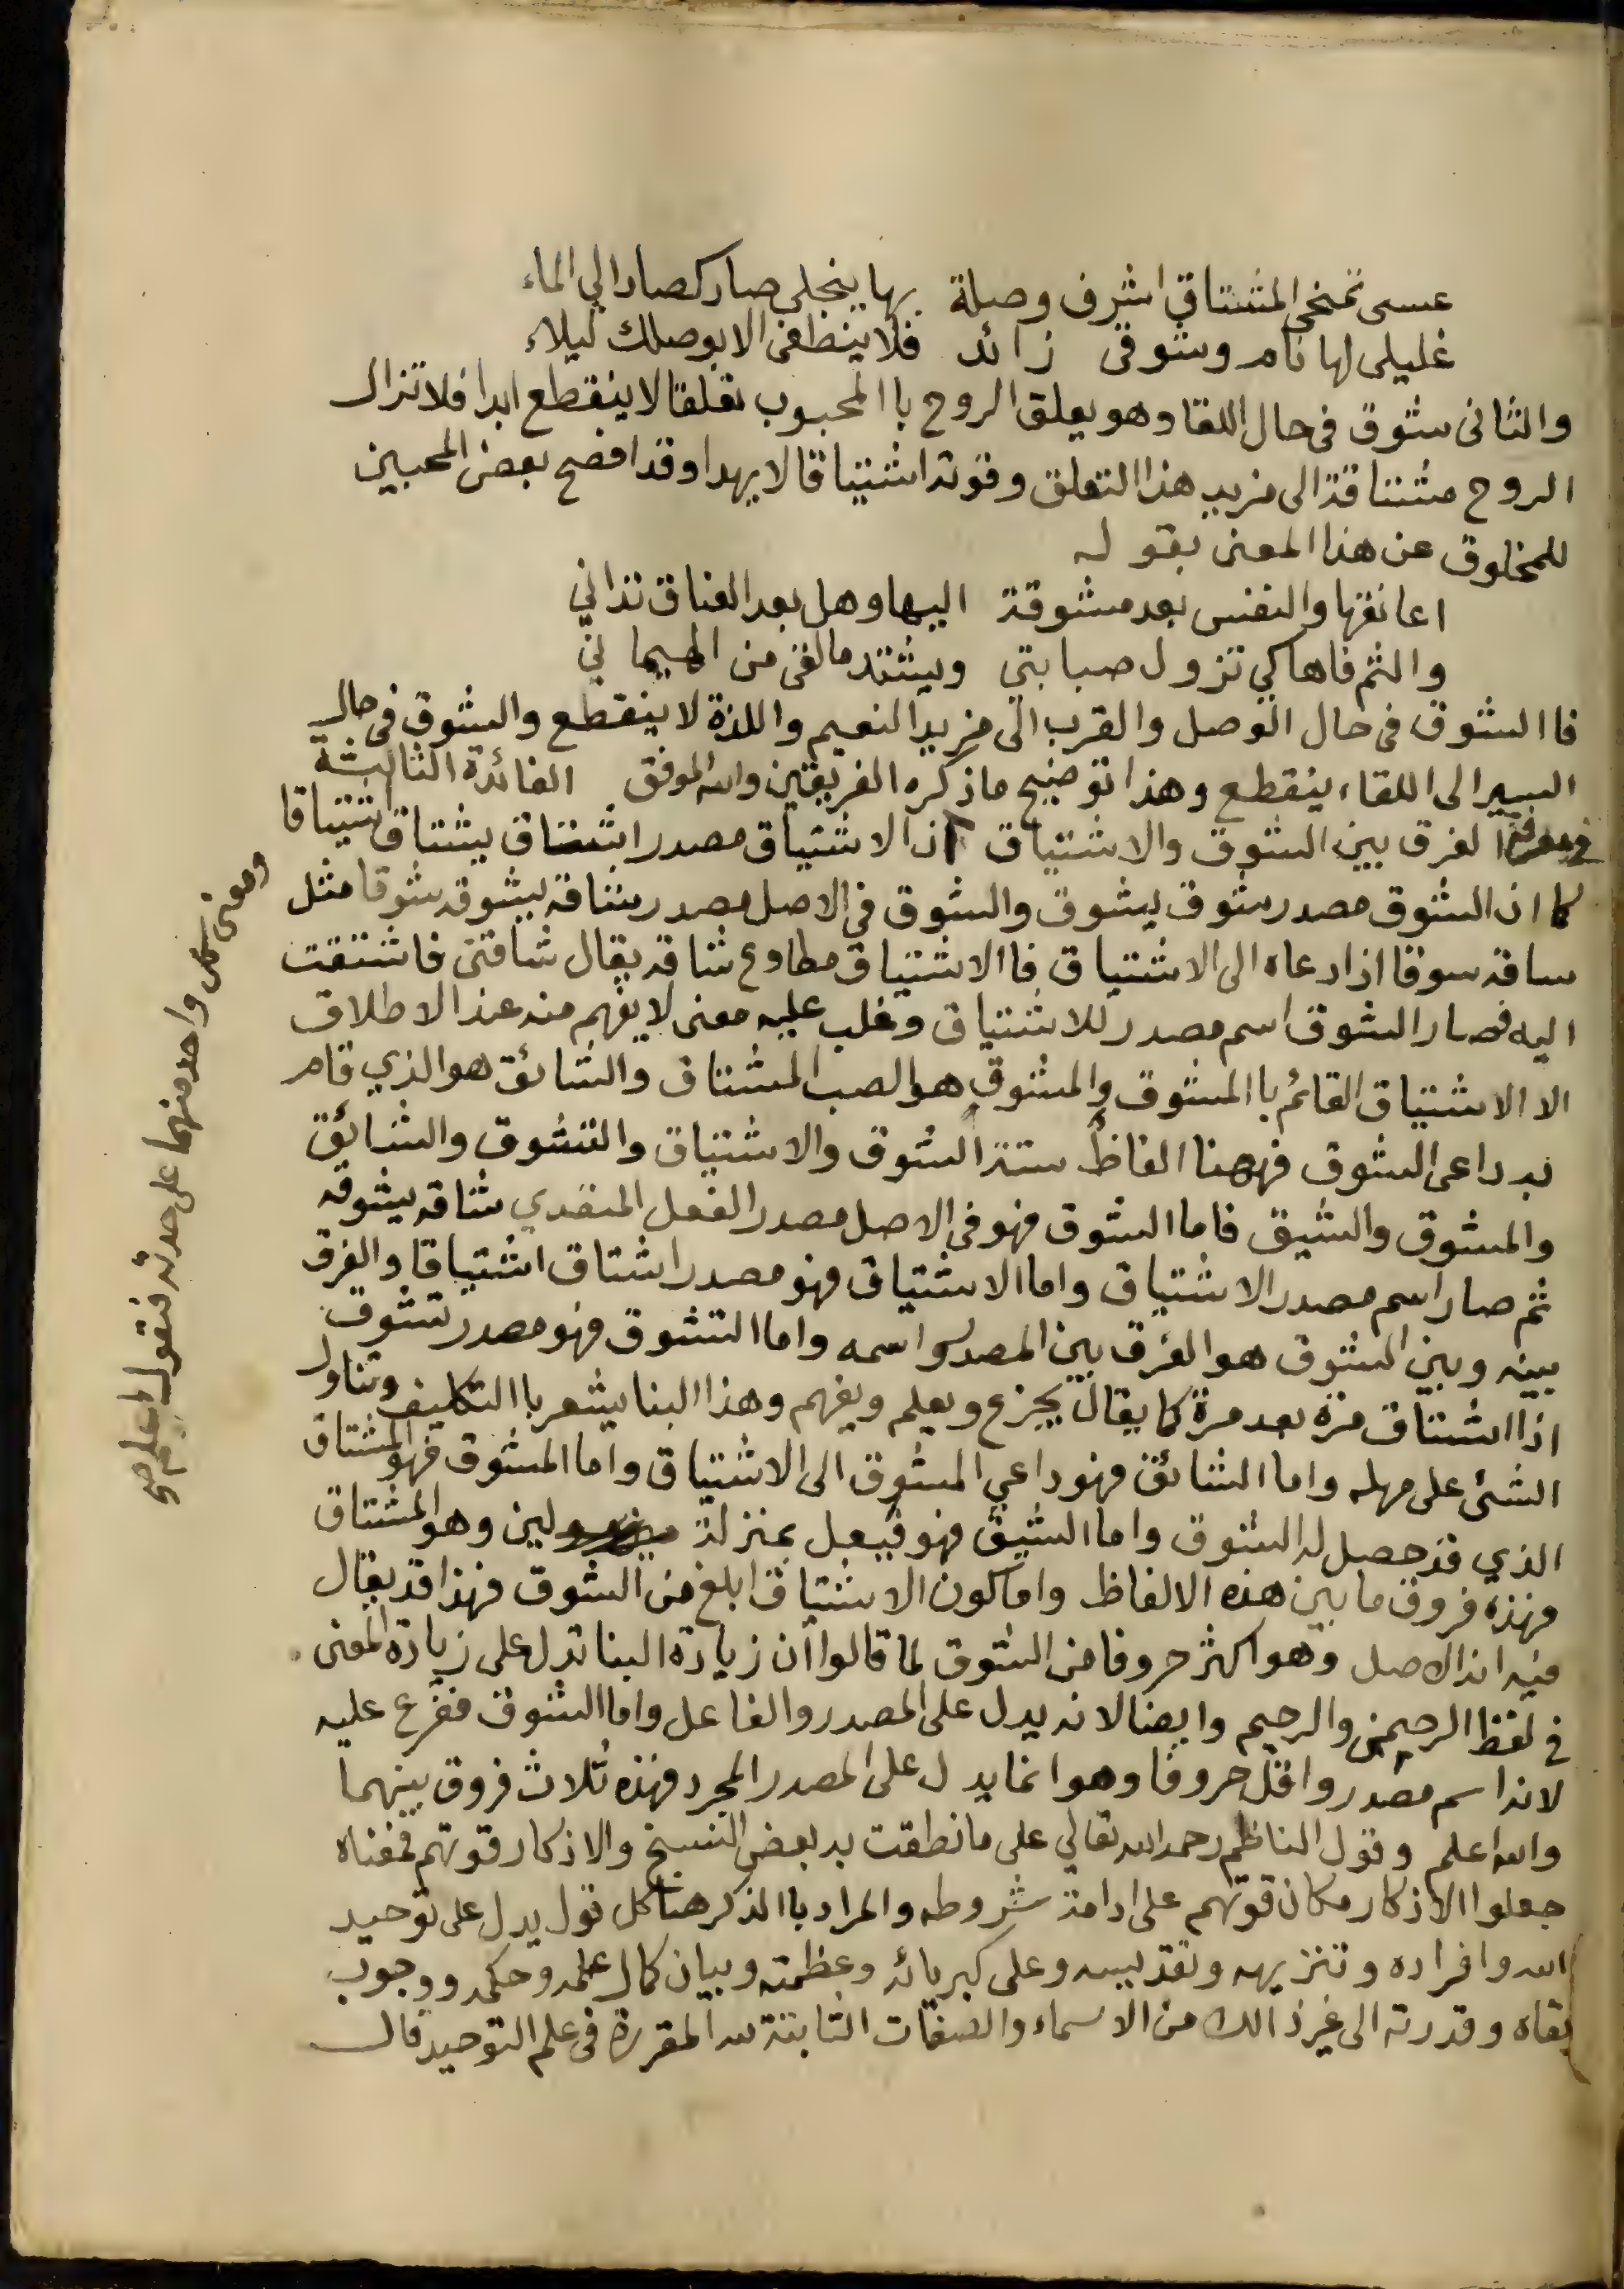 عسى تمنحي المشتاق اشرف وصلة بها ينجلي صار كصار الي الماء
غليلي لها نام وشوقي زائد فلا ينطفي الا بوصلك ليلاء
والثاني شوق في حال اللقا وهو يعلق الروح باالمحبوب تعلقا لا ينقطع ابدا فلا تزال
الروح مشتاقة الى مزيد هذا التعلق وقوته اشتياقا لا يهدا وقد افصح بعض المحبين
للمخلوق عن هذا المعنى بقوله
اعانقها والنفس بعد مشوقة اليها وهل بعد العناق تداني
والثم فاها كي تزول صبابتي ويشتد ما القى من الهيماني
فاالشوق في حال الوصل والقرب الى مزيد النعيم واللذة لا ينقطع والشوق في حال
السير الى اللقاء ينقطع وهذا توضيح ما ذكره الفريقين والله الموفق الفائدة الثالثة
في معرفة الفرق بين الشوق والاشتياق ان الاشتياق مصدر اشتاق يشتاق اشتياقا
كما ان الشوق مصدر شوق يشوق والشوق في الاصل مصدر شاقه يشوقه شوقا مثل
ساقه سوقا اذا دعاه الى الاشتياق فاالاشتياق مطاوع شاقه يقال شاقني فاشتقت
اليه فصار الشوق اسم مصدر للاشتياق وغلب عليه معنى لا يفهم منه عند الاطلاق
الا الاشتياق القائم باالمشوق والمشوق هو الصب المشتاق والشائق هو الذي قام
به داعي الشوق فههنا الفاظ ستة الشوق والاشتياق والتشوق والشائق
والمشوق والشيق فاما الشوق فهو في الاصل مصدر الفعل المتعدي شاقه يشوقه
ثم صار اسم مصدر الاشتياق واما الاشتياق فهو مصدر اشتاق اشتياقا والفرق
بينه وبين الشوق هو الفرق بين المصدر واسمه واما التشوق فهو مصدر تشوق
اذا اشتاق مرة بعد مرة كما يقال تجزع ويعلم ويفهم وهذا البنا يشعر باالتكليف وتناول
الشئ على مهله واما الشائق فهو داعي المشوق الى الاشتياق واما المشوق فهو المشتاق
الذي قد حصل له الشوق واما الشيق فهو فيعل بمنزلة لين وهو المشتاق
فهذه فروق ما بين هذه الالفاظ واما كون الاشتياق ابلغ من الشوق فهذا قد يقال
فيه انه الاصل وهو اكثر حروفا من الشوق لما قالوا ان زيادة البنا تدل على زيادة المعنى
في لفظ الرحمن والرحيم وايضا لانه يدل على المصدر والفاعل واما الشوق ففرع عليه
لانه اسم مصدر واقل حروفا وهو انما يدل على المصدر المجرد فهذه ثلاث فروق بينهما
والله اعلم وقول الناظم رحمه الله تعالي على ما نطقت به بعض النسخ والاذكار قوتهم فمعناه
جعلوا الاذكار مكان قوتهم على ادامة شروطه والمراد باالذكر هنا كل قول يدل على توحيد
الله وافراده وتنزيهه وتقديسه وعلى كبريائه وعظمته وبيان كمال علمه وحكمه ووجوب
بقاه وقدرته الى غير ذالك من الاسماء والصفات الثابتة لله المقررة في علم التوحيد قال
ومعنى كل واحد منهما على حدته فنقول اعلم صح